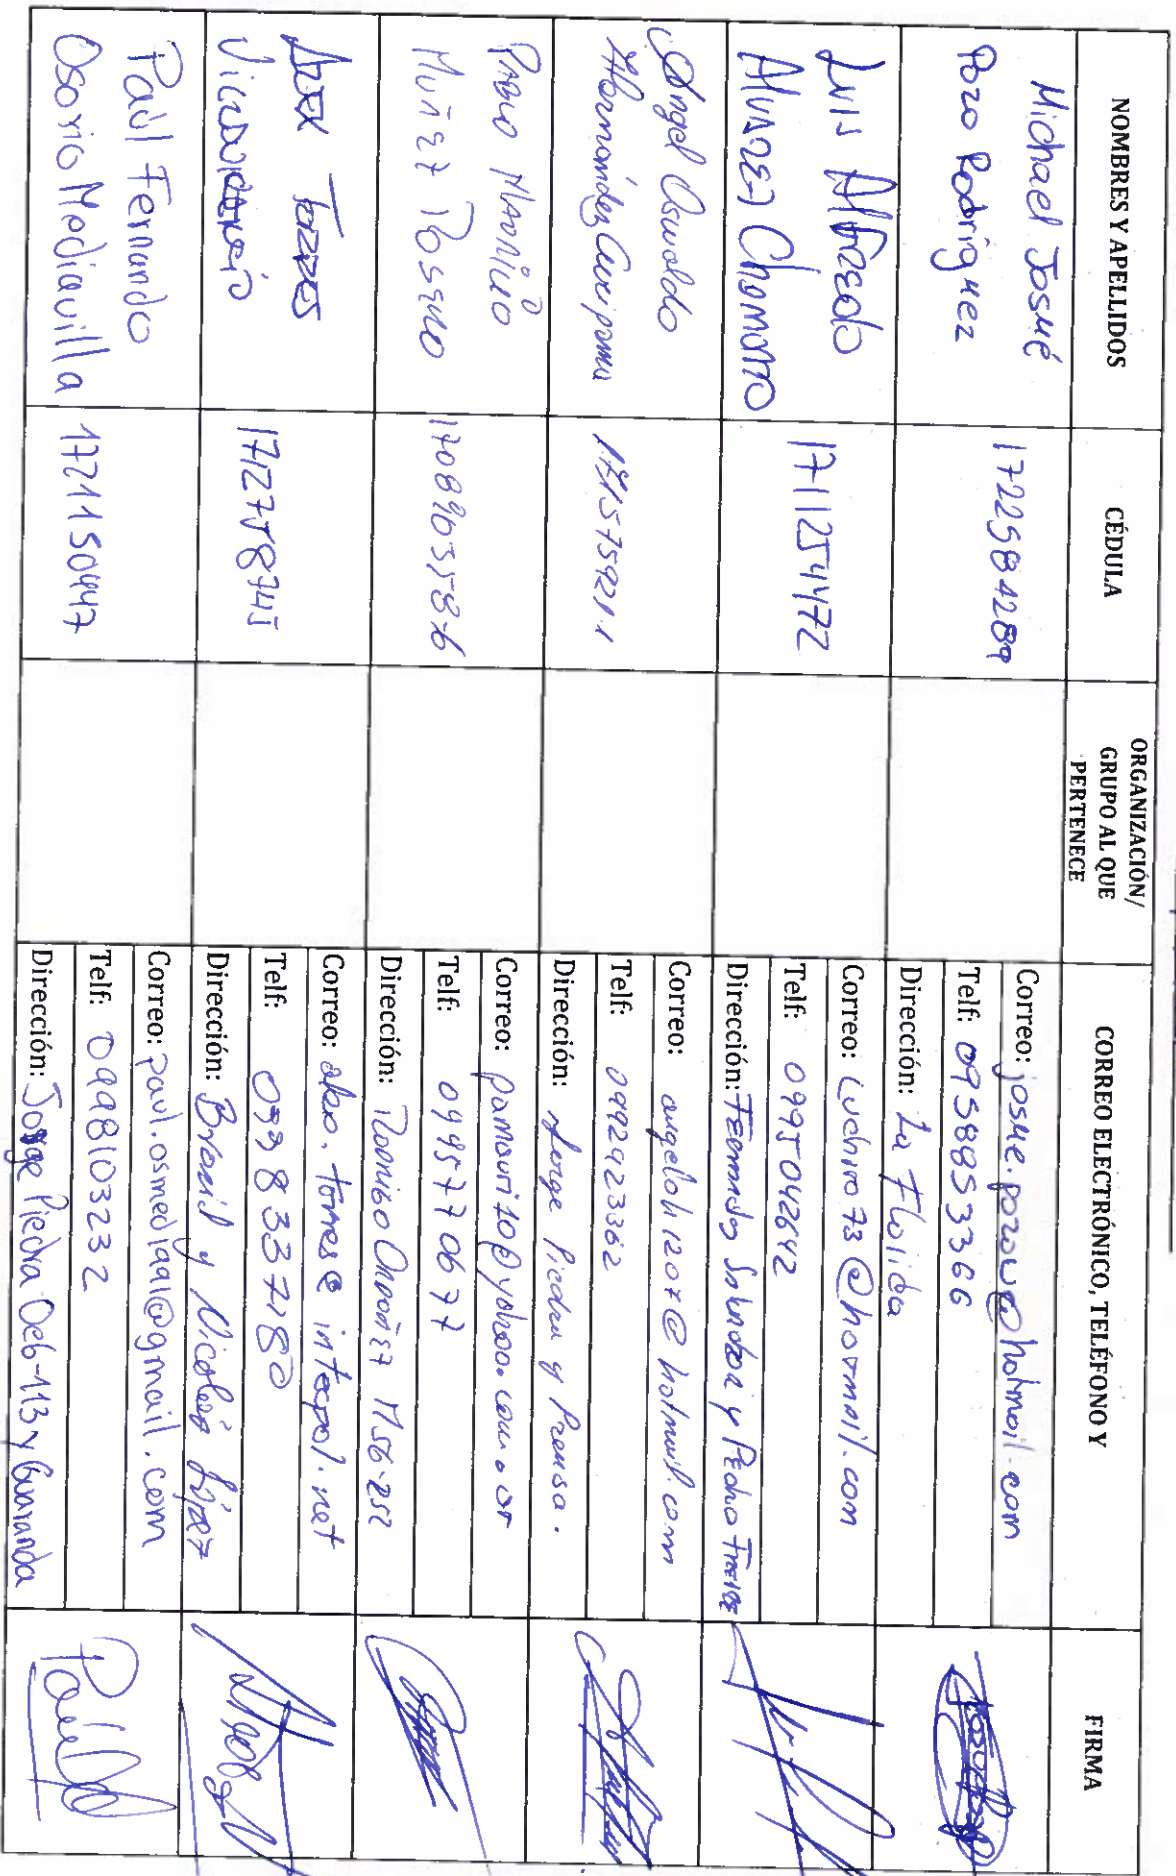 NOMBRES Y APELLIDOS
CÉDULA
ORGANIZACIÓN/
GRUPO AL QUE
PERTENECE
CORREO ELECTRÓNICO, TELÉFONO Y
FIRMA
Michael Josué
Pozo Rodríguez
1722584289
Correo: josue.pozow@hotmail.com
Telf: 0958853366
Dirección: La Florida
Luis Alfredo
Alvarez Chamorro
1711254472
Correo: Luchiro73@hotmail.com
Telf: 0995042642
Dirección: Fernando Salvador y Pedro Freire
Angel Oswaldo
Hernández
1715759211
Correo: angeloh1207@hotmail.com
Telf: 0992923362
Dirección: Jorge Piedra y Prensa.
Pablo Mauricio
Muñez Rosero
Correo: pamouri10@yahoo.com.ar
Telf: 0995770677
Dirección: Ordoñez N56-252
Alex Torres
Vicencio
1712758745
Correo: alex.torres@interpol.net
Telf: 0998337180
Dirección: Brasil y Nicolás López
Paúl Fernando
Osorio Mediavilla
1721150447
Correo: paul.osmedia91@gmail.com
Telf: 0998103232
Dirección: Jorge Piedra Oe6-113 y Guaranda